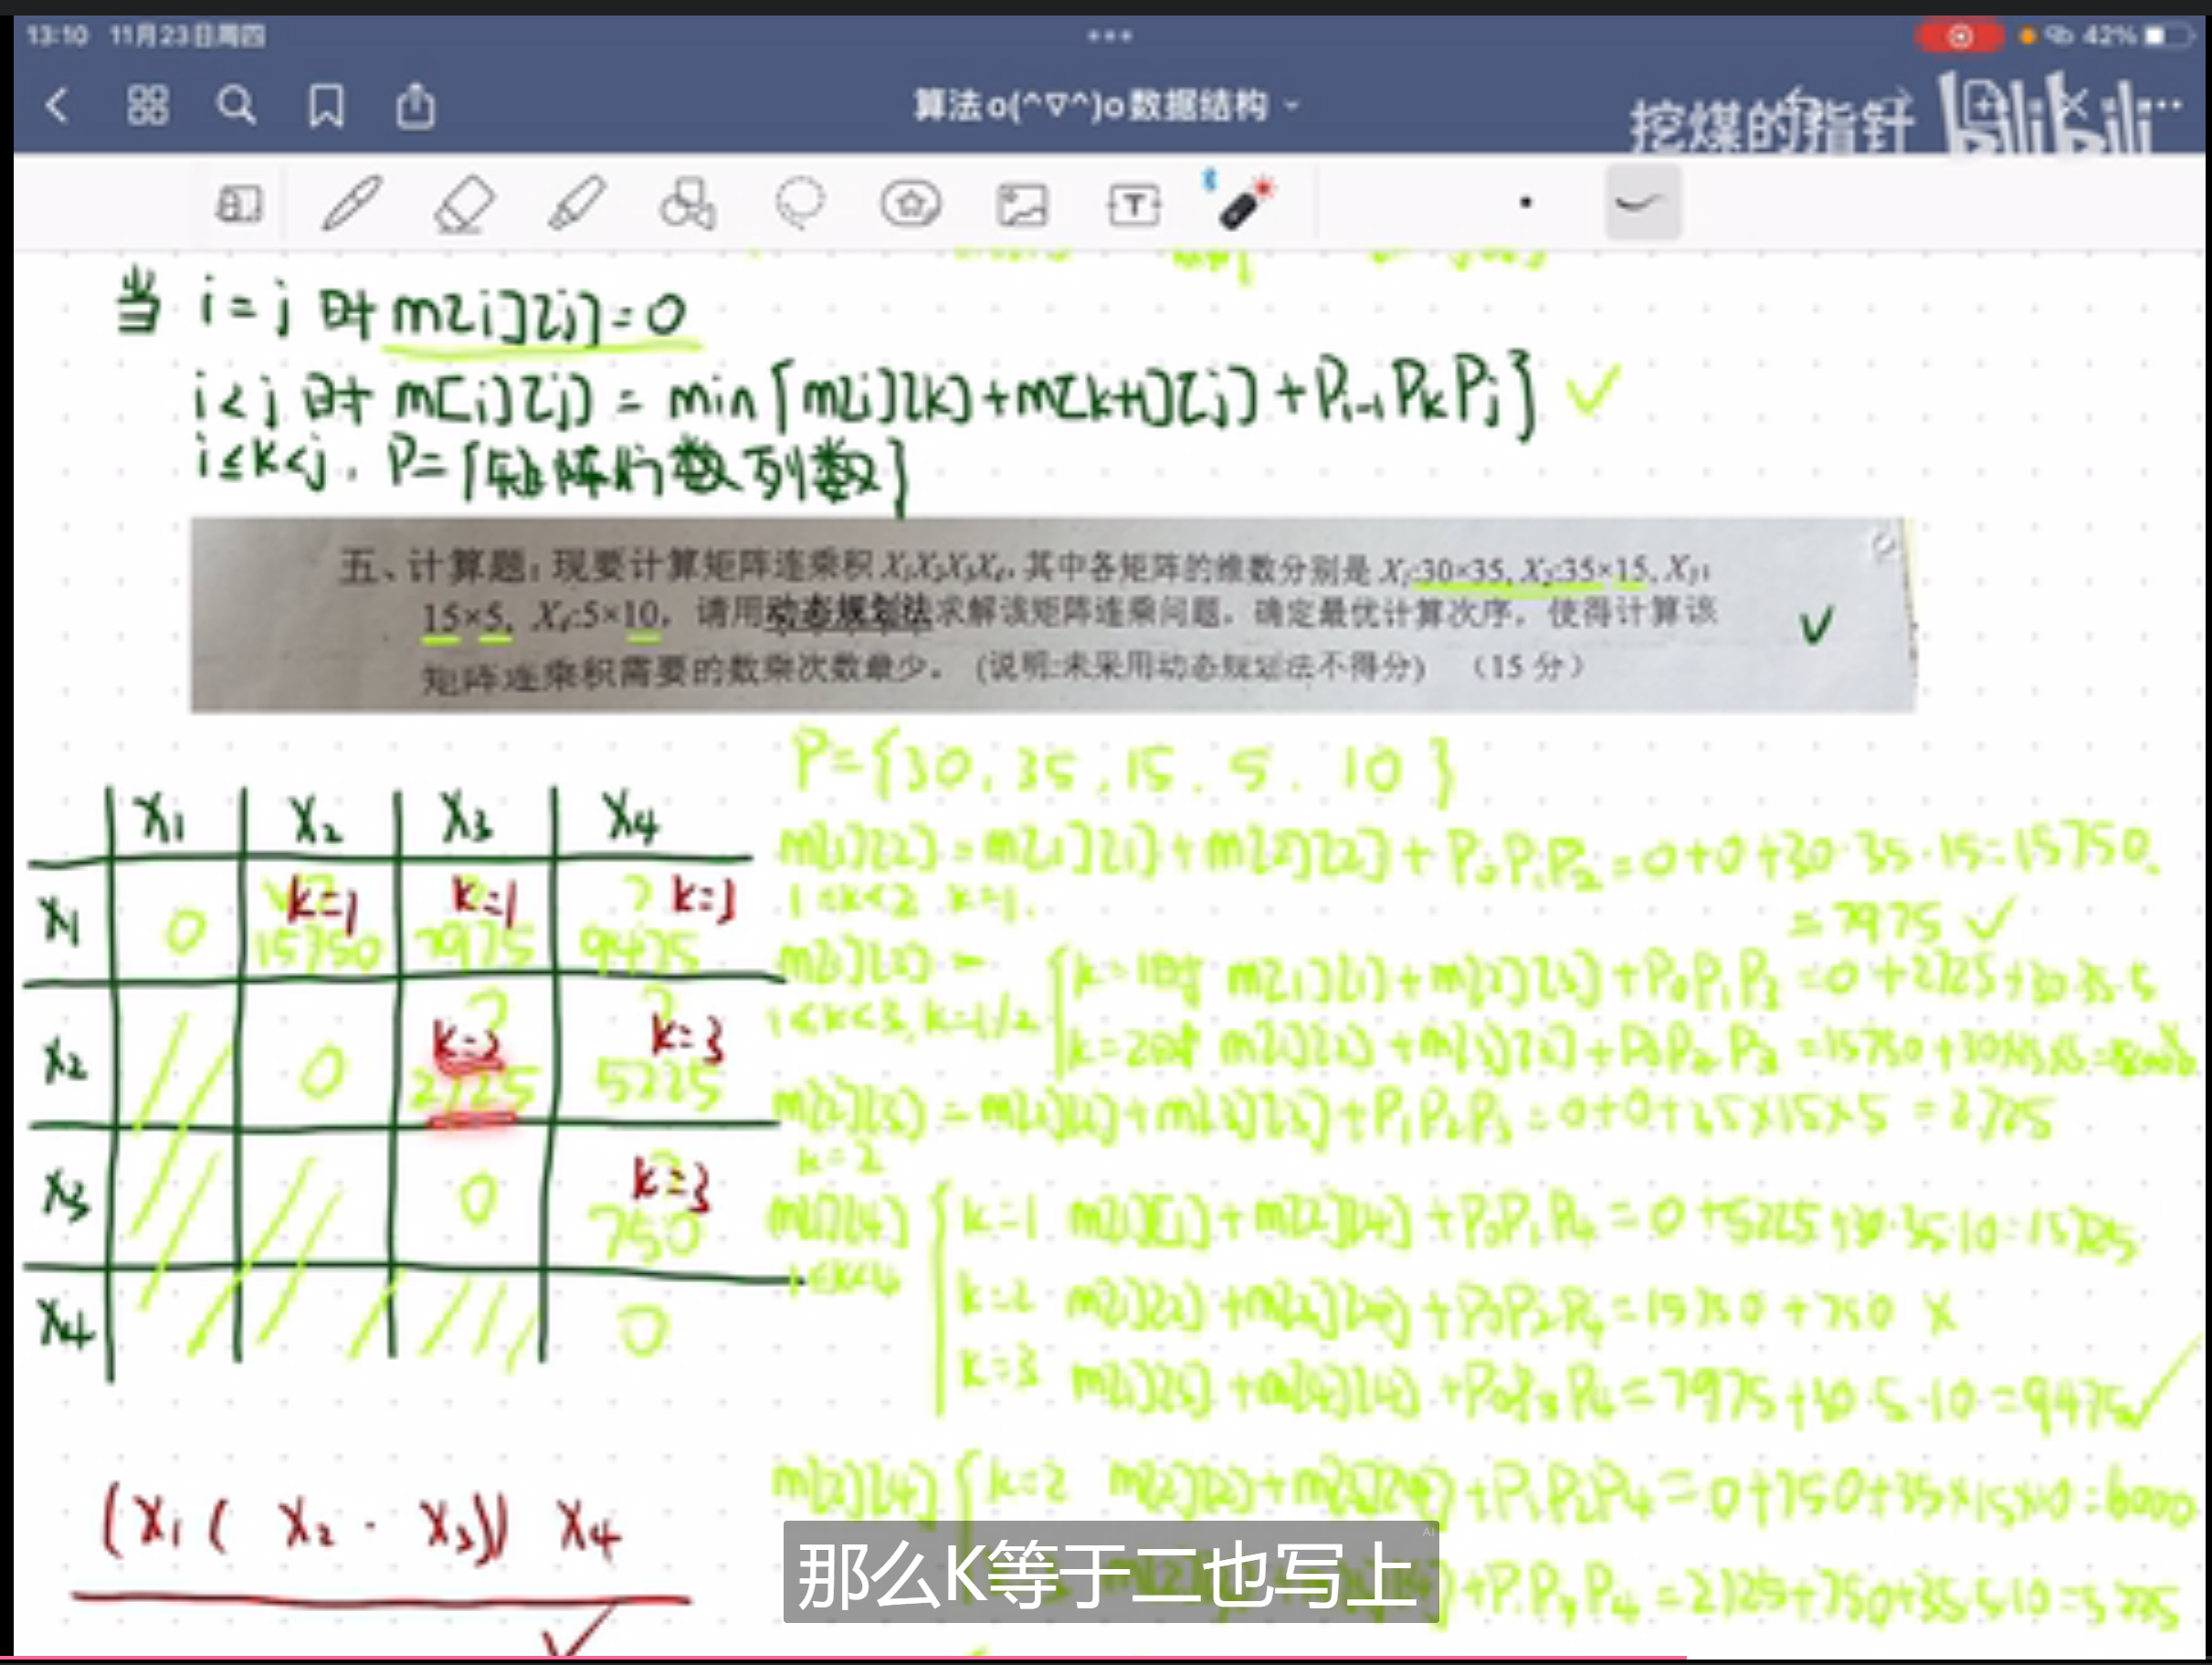 13:10 11月23日周四
42%
算法o(^▽^)o数据结构
挖煤的指针 bilibili
当 i=j 时 m[i][j]=0
i<j 时 m[i][j] = min{m[i][k]+m[k+1][j]+Pi-1PkPj}
i≤k<j. P={矩阵行数列数}
五、计算题：现要计算矩阵连乘积X₁X₂X₃X₄，其中各矩阵的维数分别是X₁:30×35, X₂:35×15, X₃:
15×5, X₄:5×10，请用动态规划法求解该矩阵连乘问题，确定最优计算次序，使得计算该
矩阵连乘积需要的数乘次数最少。(说明:未采用动态规划法不得分) （15分）
P={30, 35, 15. 5. 10}
X₁ X₂ X₃ X₄
X₁ 0 k=1 15750 k=1 7975 ? k=3 9475
X₂ 0 k=2 2725 k=3 5225
X₃ 0 k=3 750
X₄ 0
m[1][2] = m[1][1] + m[2][2] + P₀P₁P₂ = 0+0+30·35·15=15750.
1≤k<2 k=1.
=7975 ✓
m[1][3] =
1≤k<3, k=1/2
k=1时 m[1][1]+m[2][3]+P₀P₁P₃ =0+2725+30·35·5
k=2时 m[1][2]+m[3][3]+P₀P₂P₃ =15750+30×15×5
m[2][3] = m[2][2]+m[3][3]+P₁P₂P₃=0+0+35×15×5 =2725
k=2
m[1][4]
1≤k<4
k=1 m[1][1]+m[2][4]+P₀P₁P₄ = 0+5225+30·35·10=15725
k=2 m[1][2]+m[3][4]+P₀P₂P₄=15750+750 ×
k=3 m[1][3]+m[4][4]+P₀P₃P₄=7975+30·5·10=9475 ✓
m[2][4] k=2 m[2][2]+m[3][4]+P₁P₂P₄=0+750+35×15×10=6000
+P₁P₃P₄=2725+750+35·5·10=5225
(X₁( X₂ · X₃)) X₄
AI
那么K等于二也写上